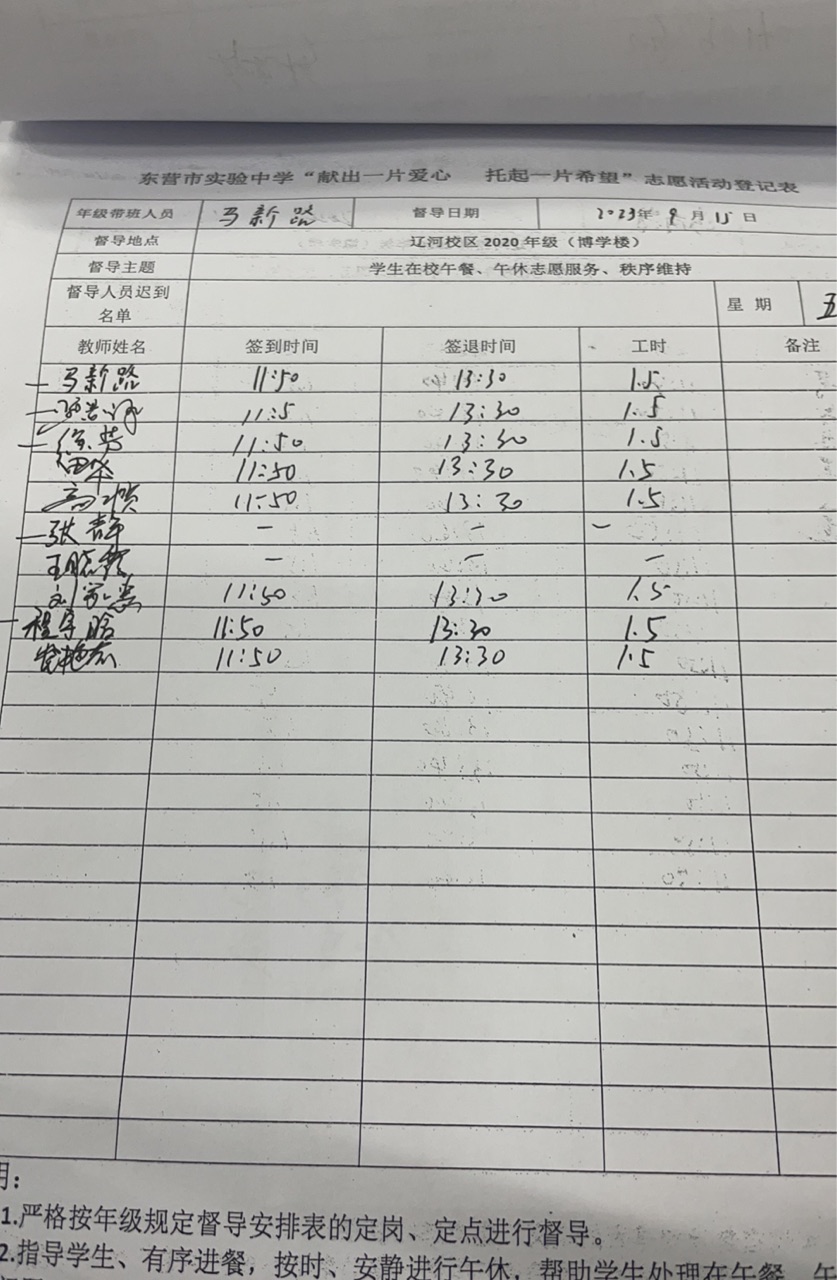 东营市实验中学“献出一片爱心 托起一片希望”志愿活动登记表
年级带班人员 马新路 督导日期 2023年9月15日
督导地点 辽河校区2020年级（博学楼）
督导主题 学生在校午餐、午休志愿服务、秩序维持
督导人员迟到名单 星期 五
教师姓名 签到时间 签退时间 工时 备注
马新路 11:50 13:30 1.5
11:5 13:30 1.5
徐芳 11:50 13:30 1.5
11:50 13:30 1.5
高 11:50 13:30 1.5
张静 — — —
王晓 — — —
刘 11:50 13:30 1.5
程宇晗 11:50 13:30 1.5
11:50 13:30 1.5
明：
1.严格按年级规定督导安排表的定岗、定点进行督导。
2.指导学生、有序进餐，按时、安静进行午休，帮助学生处理在午餐、午